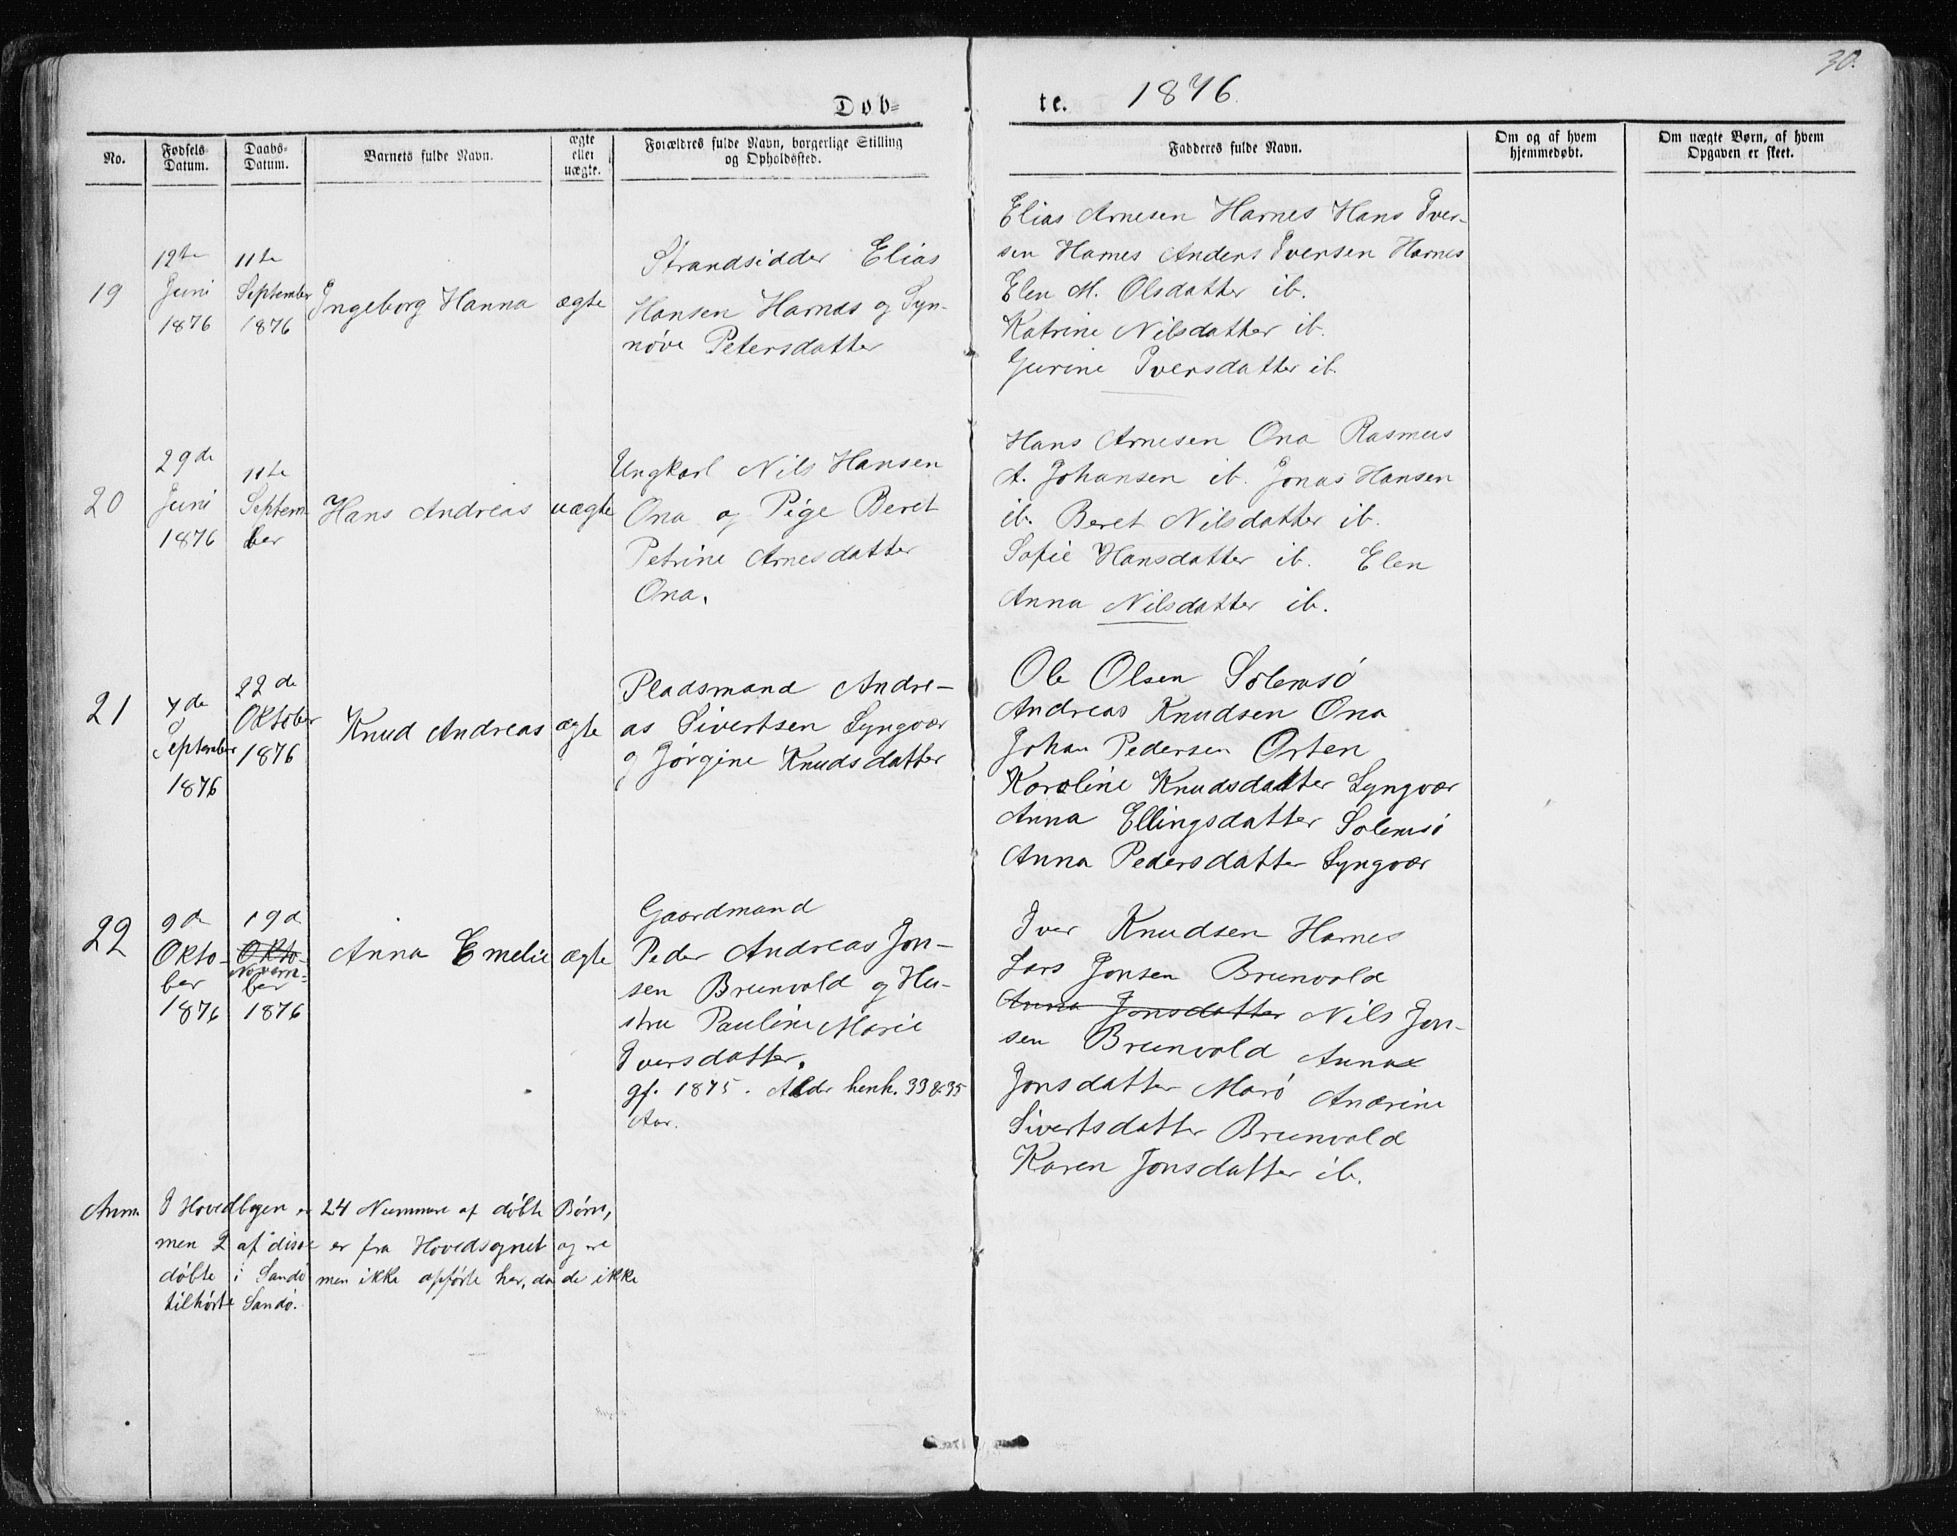 30.
Døb=
te. 1876.
No.
Fødsels
Datum.
Daabs=
Datum.
Barnets fulde Navn.
ægte
eller
uægte.
Forældres fulde Navn, borgerlige Stilling
og Opholdssted.
Fadderes fulde Navn.
Om og af hvem
hjemmedøbt.
Om uægte Børn, af hvem
Opgaven er skeet.
19
12te
Juni
1876
11te
September
1876
Ingeborg Hanna
ægte
Strandsidder Elias
Hansen Harnæs og Syn-
nøve Petersdatter
Elias Arnesen Harnes Hans Iver-
sen Harnes Anders Iversen Harnes
Elen M. Olsdatter ib.
Katrine Nilsdatter ib.
Gurine Iversdatter ib.
20
29de
Juni
1876
11te
Septem
ber
Hans Andreas
uægte
Ungkarl Nils Hansen
Ona og Pige Beret
Petrine Arnesdatter
Ona.
Hans Arnesen Ona Rasmus
A. Johansen ib. Jonas Hansen
ib. Beret Nilsdatter ib.
Sofie Hansdatter ib. Elen
Anna Nilsdatter ib.
21
7de
September
1876
22de
Oktober
1876
Knud Andreas
ægte
Pladsmand Andre-
as Sivertsen Lyngvær
og Jørgine Knudsdatter
Ole Olsen Solemsö
Andreas Knudsen Ona
Johan Pedersen Orten
Karoline Knudsdatter Lyngvær
Anna Ellingsdatter Solemsö
Anna Pedersdatter Lyngvær
22
9de
Okto-
ber
1876
19d
Okto-
Novem-
ber
1876
Anna Emelie
ægte
Gaardmand
Peder Andreas Jon-
sen Brunvold og Hu-
stru Pauline Marie
Iversdatter.
gf. 1875. Alder henh. 33 & 35
Aar.
Iver Knudsen Harnes
Lars Jonsen Brunvold
Anna Jonsdatter Nils Jon-
sen Brunvold Anna
Jonsdatter Marö Anerine
Sivertsdatter Brunvold
Karen Jonsdatter ib.
Anm. I Hovedbogen er 24 Nummere af døbte Børn,
men 2 af disse er fra Hovedsognet og ere
døbte i Sandö men ikke opførte her, da de ikke
tilhørte Sandö.